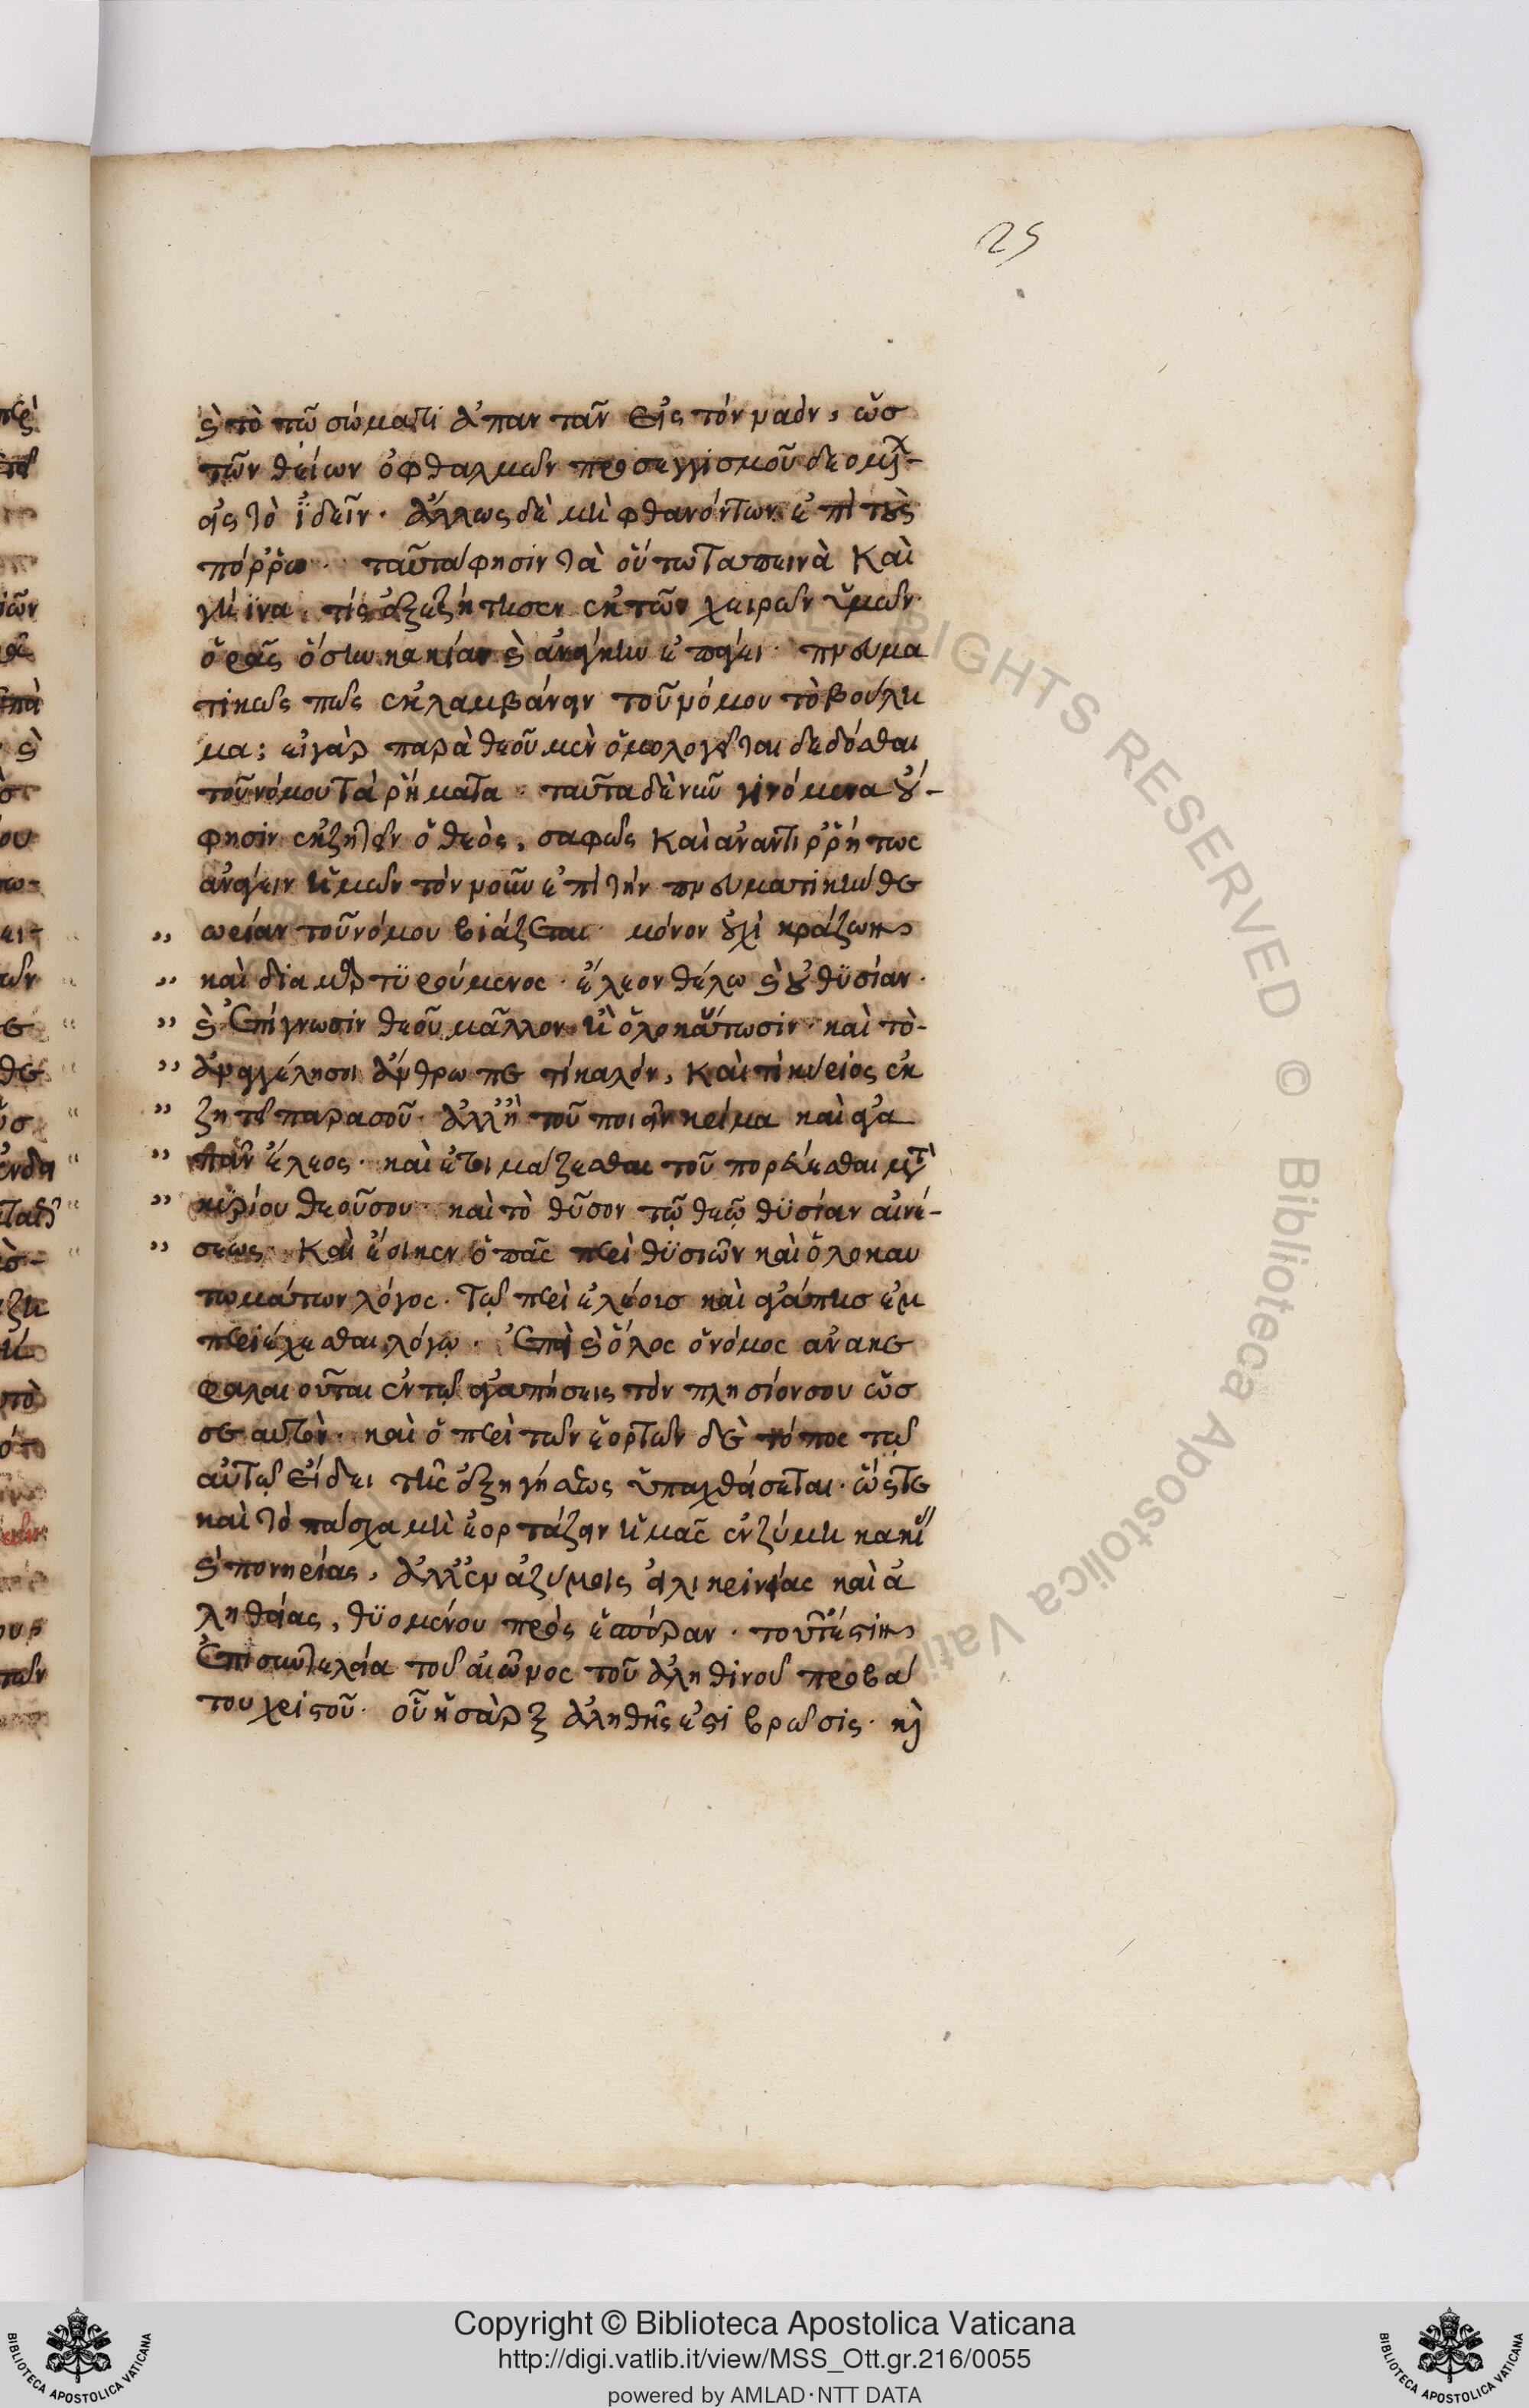 25
καὶ τὸ τῶ σώματι ἀπαντᾶν εἰς τὸν ναὸν, ὡς
τῶν θείων ὀφθαλμῶν προσεγγισμοῦ δεομέν
εἰς τὸ ἰδεῖν. ἄλλως δὲ μὴ φθανόντων ἐπὶ τοὺς
πόρρω. ταῦτα φησὶν τὰ οὕτω ταπεινὰ καὶ
γήϊνα. τίς ἐξεζήτησεν ἐκ τῶν χειρῶν ὑμῶν.
ὁρᾶς ὅσην κακίαν καὶ ἀνάγκην ἐπάγει. πνευμα
τικῶς πως ἐκλαμβάνειν τοῦ νόμου τὸ βούλη
μα; εἰ γὰρ παρὰ θεοῦ μὲν ὁμολογεῖται δεδόσθαι
τοῦ νόμου τὰ ῥήματα. ταῦτα δὲ νῦν γινόμενα οὔ
φησὶν ἐκζητεῖν ὁ θεὸς, σαφῶς καὶ ἀναντιρρήτως
ἀνάγειν ἡμῶν τὸν νοῦν ἐπὶ τὴν πνευματικὴν θε
ωρίαν τοῦ νόμου βιάζεται. μόνον οὐχὶ κράζων
καὶ διαμαρτυρούμενος. ἔλεον θέλω καὶ οὐ θυσίαν.
καὶ ἐπίγνωσιν θεοῦ μᾶλλον ἢ ὁλοκαύτωσιν. καὶ τὸ
ἀνηγγέλη σοι ἄνθρωπε τί καλόν, καὶ τί κύριος ἐκ
ζητεῖ παρὰ σοῦ. ἀλλ' ἢ τοῦ ποιεῖν κρίμα καὶ ἀγα
πᾶν ἔλεος. καὶ ἑτοιμάζεσθαι τοῦ πορεύεσθαι μετὰ
κυρίου θεοῦ σου. καὶ τὸ θῦσον τῷ θεῷ θυσίαν αἰνέ
σεως. καὶ ἔοικεν ὁ πᾶς περὶ θυσιῶν καὶ ὁλοκαυ
τωμάτων λόγος. τῷ περὶ ἐλέους καὶ ἀγάπης ἐμ
περιέχεσθαι λόγω. ἐπεὶ καὶ ὅλος ὁ νόμος ἀνακε
φαλαιοῦται ἐν τῷ ἀγαπήσεις τὸν πλησίον σου ὡς
σεαυτόν. καὶ ὁ περὶ τῶν ἑορτῶν δὲ τόπος τῷ
αὐτῷ εἴδει τῆς ἐξηγήσεως ὑπαχθήσεται. ὥστε
καὶ τὸ πάσχα μὴ ἑορτάζειν ἡμᾶς ἐν ζύμη κακί
καὶ πονηρίας, ἀλλ' ἐν ἀζύμοις εἰλικρινείας καὶ ἀ
ληθείας, θυομένου πρὸς ἑσπέραν. τουτέστιν
ἐπὶ συντελεία τοῦ αἰῶνος τοῦ ἀληθινοῦ προβά
του χριστοῦ. οὗ ἡ σὰρξ ἀληθής ἐστι βρῶσις. καὶ
Copyright © Biblioteca Apostolica Vaticana
http://digi.vatlib.it/view/MSS_Ott.gr.216/0055
powered by AMLAD·NTT DATA